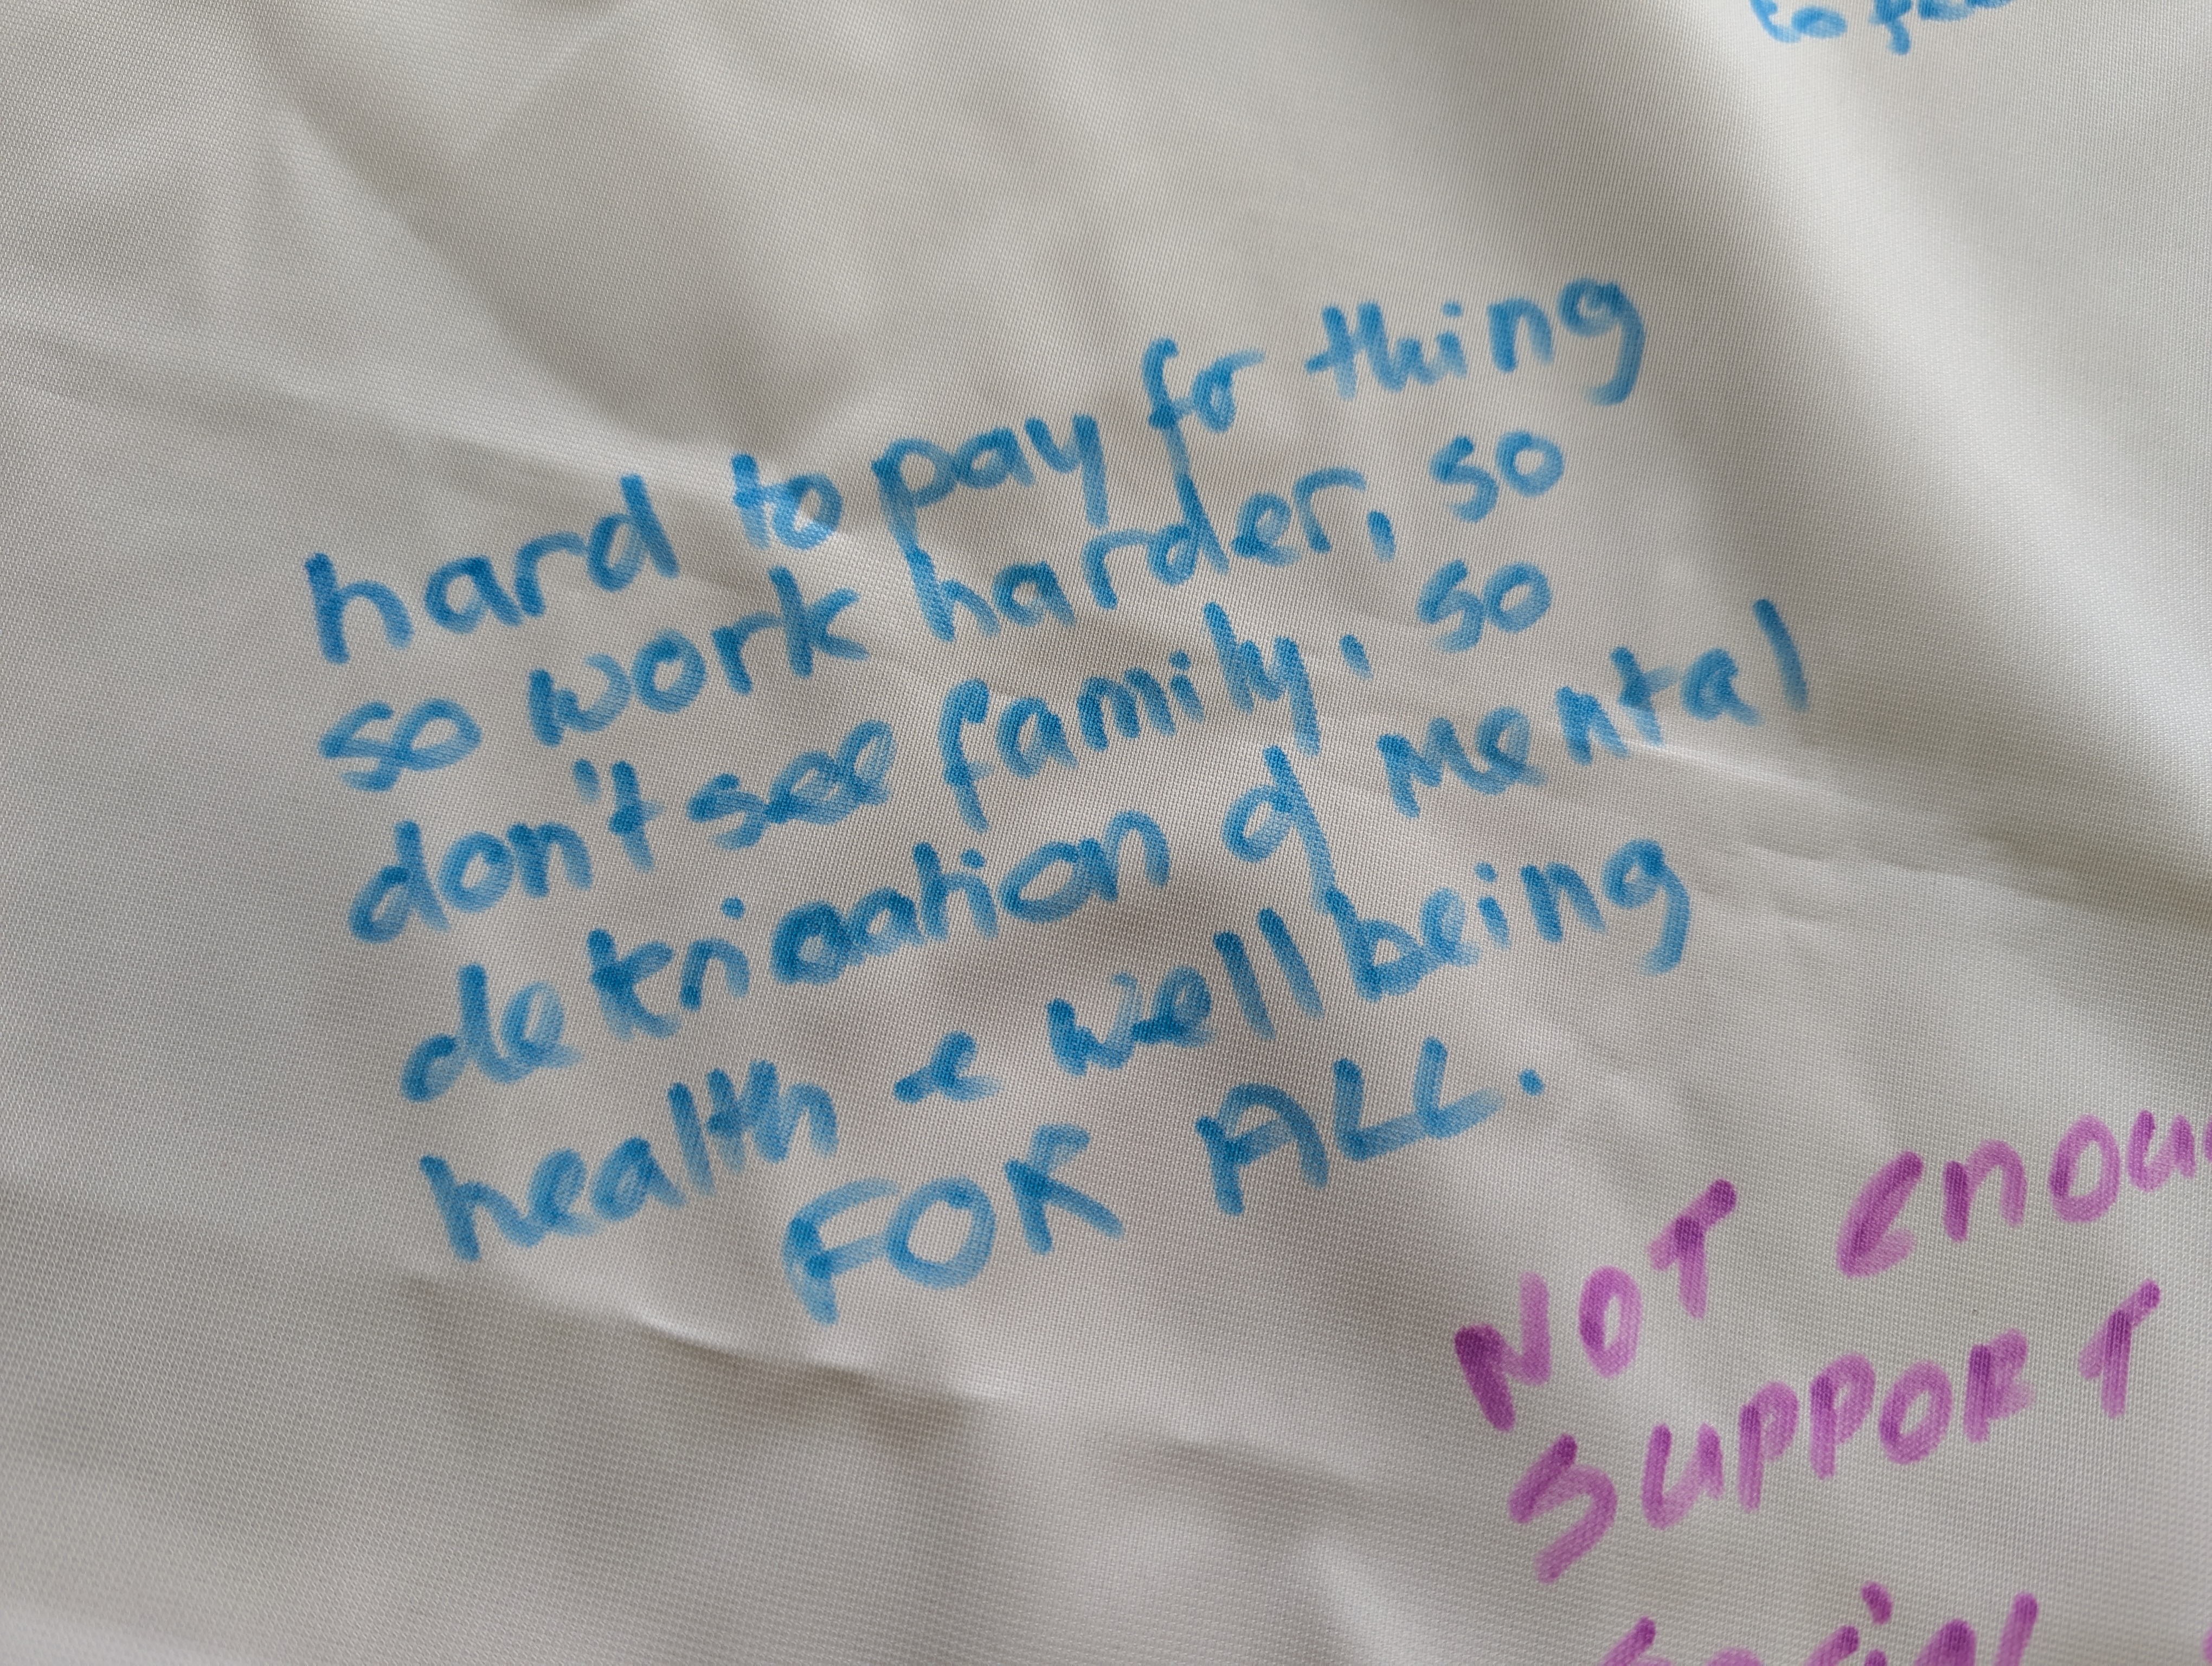 to
hard to pay for thing
so work harder, so
don't see family, so
detrioation of Mental
health & well being
FOR ALL.
NOT enou
SUPPORT
social